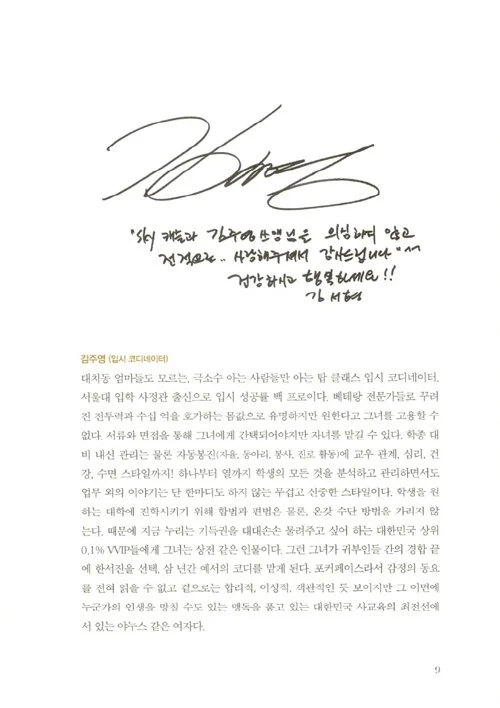 "SKY 캐슬과 김주영 쓰앵님을 의심하지 않고
전적으로.. 사랑해주셔서 감사드립니다"
건강하시고 행복하세요!!
김서형
김주영 (입시 코디네이터)
대치동 엄마들도 모르는, 극소수 아는 사람들만 아는 탑 클래스 입시 코디네이터.
서울대 입학 사정관 출신으로 입시 성공률 백 프로이다. 베테랑 전문가들로 꾸려
진 전투력과 수십 억을 호가하는 몸값으로 유명하지만 원한다고 그녀를 고용할 수
없다. 서류와 면접을 통해 그녀에게 간택되어야지만 자녀를 맡길 수 있다. 학종 대
비 내신 관리는 물론 자동봉진(자율, 동아리, 봉사, 진로 활동)에 교우 관계, 심리, 건
강, 수면 스타일까지! 하나부터 열까지 학생의 모든 것을 분석하고 관리하면서도
업무 외의 이야기는 단 한마디도 하지 않는 무겁고 신중한 스타일이다. 학생을 원
하는 대학에 진학시키기 위해 합법과 편법은 물론, 온갖 수단 방법을 가리지 않
는다. 때문에 지금 누리는 기득권을 대대손손 물려주고 싶어 하는 대한민국 상위
0.1% VVIP들에게 그녀는 상전 같은 인물이다. 그런 그녀가 귀부인들 간의 경합 끝
에 한서진을 선택, 삼 년간 예서의 코디를 맡게 된다. 포커페이스라서 감정의 동요
를 전혀 읽을 수 없고 겉으로는 합리적, 이상적, 객관적인 듯 보이지만 그 이면에
누군가의 인생을 망칠 수도 있는 맹독을 품고 있는 대한민국 사교육의 최전선에
서 있는 야누스 같은 여자다.
9